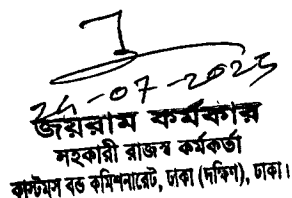 24-07-2025
জয়রাম কর্মকার
সহকারী রাজস্ব কর্মকর্তা
কাস্টমস বন্ড কমিশনারেট, ঢাকা (দক্ষিণ), ঢাকা।